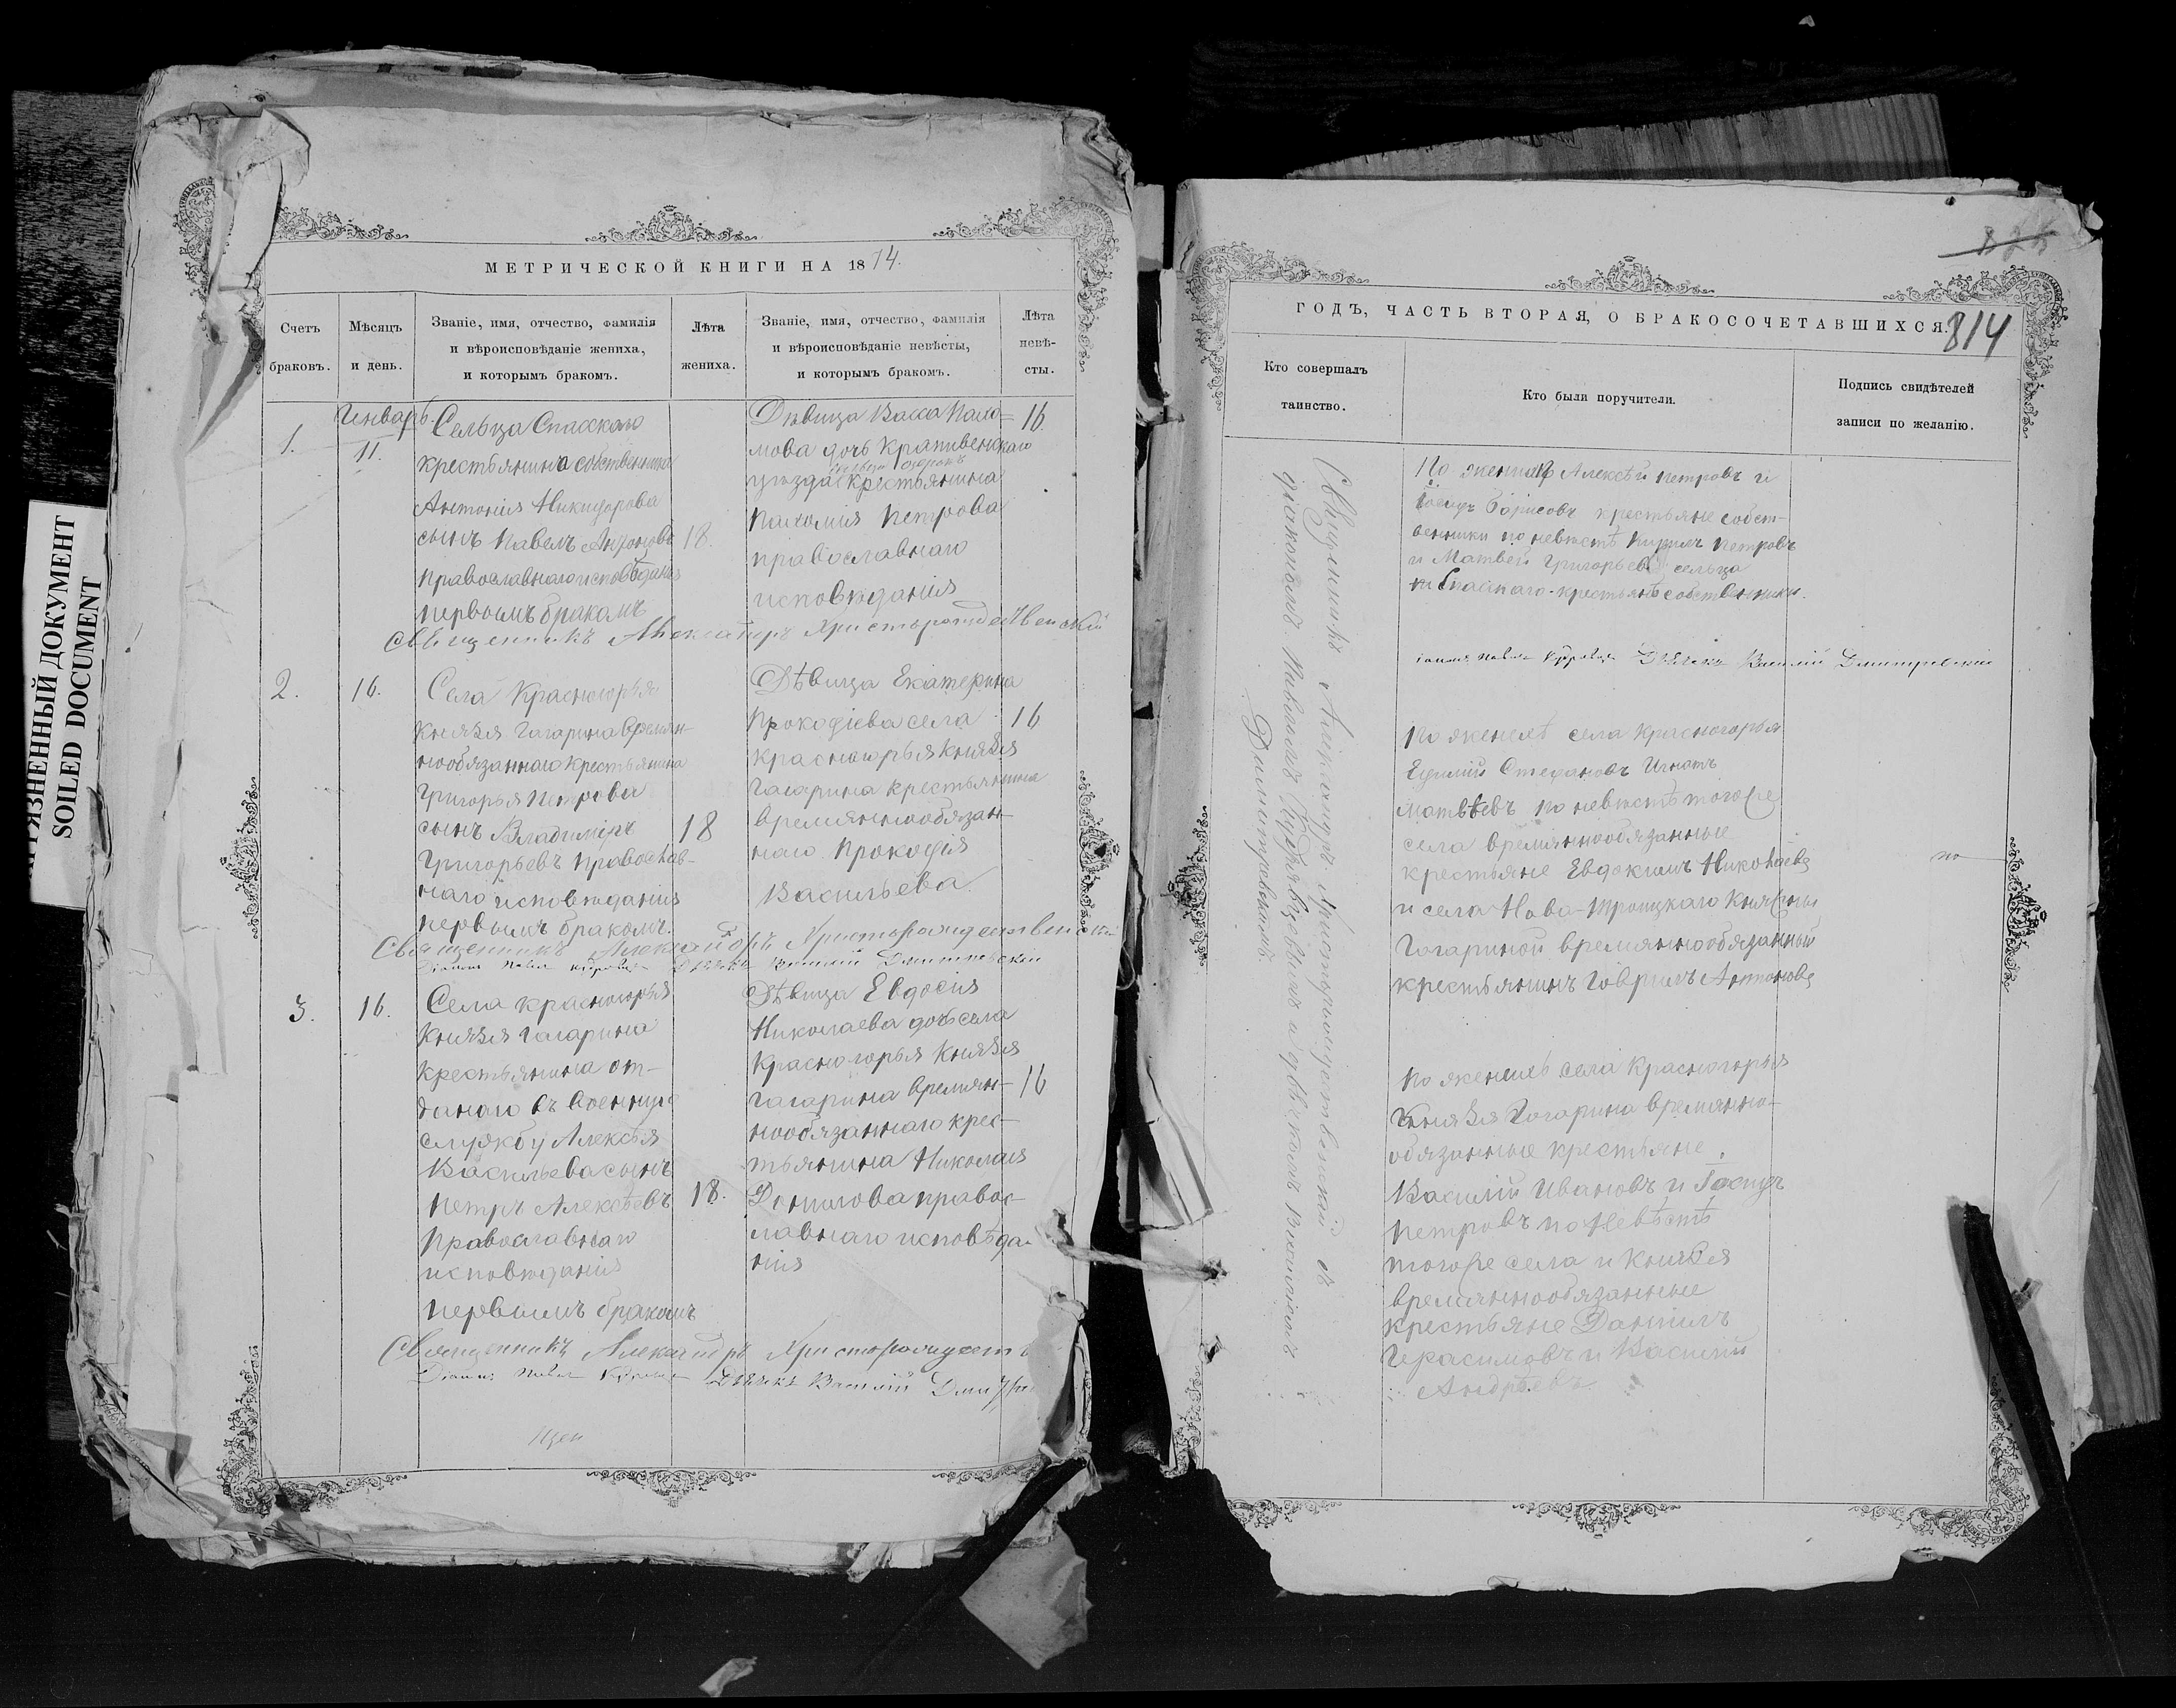 ГРЯЗНЕННЫЙ ДОКУМЕНТ
SOILED DOCUMENT
МЕТРИЧЕСКОЙ КНИГИ НА 1874.
Счетъ браковъ.
Мѣсяцъ и день.
Званіе, имя, отчество, фамилія
и вѣроисповѣданіе жениха,
и которымъ бракомъ.
Лѣта жениха.
Званіе, имя, отчество, фамилія
и вѣроисповѣданіе невѣсты,
и которымъ бракомъ.
Лѣта невѣ-
сты.
1.
Генварь
11.
Сельца Спасскаго
крестьянина собственника
Антонія Никифорова
сынъ Павелъ Антоновъ
православнаго исповѣданія
первымъ бракомъ
18.
Дѣвица Васса Пахо=
мова дочь Крапивенскаго
уѣзда крестьянина
Пахомія Петрова
православнаго
исповѣданія
16
Священникъ Александръ Христорождественскій
2.
16.
Села Красногорья
Князя Гагарина времян-
нообязаннаго крестьянина
Григорья Петрова
сынъ Владимиръ
Григорьевъ православ-
наго исповѣданія
первымъ бракомъ.
18
Дѣвица Екатерина
Прокофіева села
Красногорья Князя
Гагарина крестьянина
времяннообязан-
наго Прокофія
Васильева.
16
Священникъ Александръ Христорождественскій
Діаконъ Павелъ Кудрявцевъ Дьячекъ Василій Дмитревскій
3.
16.
Села Красногорья
Князя Гагарина
крестьянина от-
данаго въ военную
службу Алексѣя
Васильева сынъ
Петръ Алексѣевъ
Православнаго
исповѣданія
первымъ бракомъ
18.
Дѣвица Евдосія
Николаева дочь села
Красногорья Князя
Гагарина времян-
нообязаннаго крес-
тьянина Николая
Данилова правос-
лавнаго исповѣда-
нія
16
Священникъ Александръ Христорождеств
Діаконъ Павелъ Кудрявцевъ Дьячекъ Василій Дмитр
ГОДЪ, ЧАСТЬ ВТОРАЯ, О БРАКОСОЧЕТАВШИХСЯ.
814
Кто совершалъ
таинство.
Кто были поручители.
Подпись свидѣтелей
записи по желанію.
Священникъ Александръ Христорождественскій съ
діакономъ Павломъ Кудрявцевымъ и дьячкомъ Василіемъ
Дмитревскимъ.
По женихѣ Алексѣй Петровъ и
Іосифъ Борисовъ крестьяне собст-
венники по невѣстѣ Кирилъ Петровъ
и Матвей Григорьевъ сельца
Спасскаго крестьяне собственники.
Діаконъ Павелъ Кудрявцевъ Дьячекъ Василій Дмитревскій
По женихѣ села Красногорья
Ефимій Стефановъ Игнатъ
Матвѣевъ по невѣстѣ тогоже
села времяннообязанные
крестьяне Евдокимъ Николаевъ
и села Ново-Троицкаго Княгини
Гагариной времяннообязанный
крестьянинъ Гаврилъ Антоновъ
По женихѣ села Красногорья
Князя Гагарина времянно-
обязанные крестьяне
Василій Ивановъ и Іосифъ
Петровъ по невѣстѣ
тогоже села и Князя
времяннообязанные
крестьяне Данилъ
Герасимовъ и Василій
Андрѣевъ.